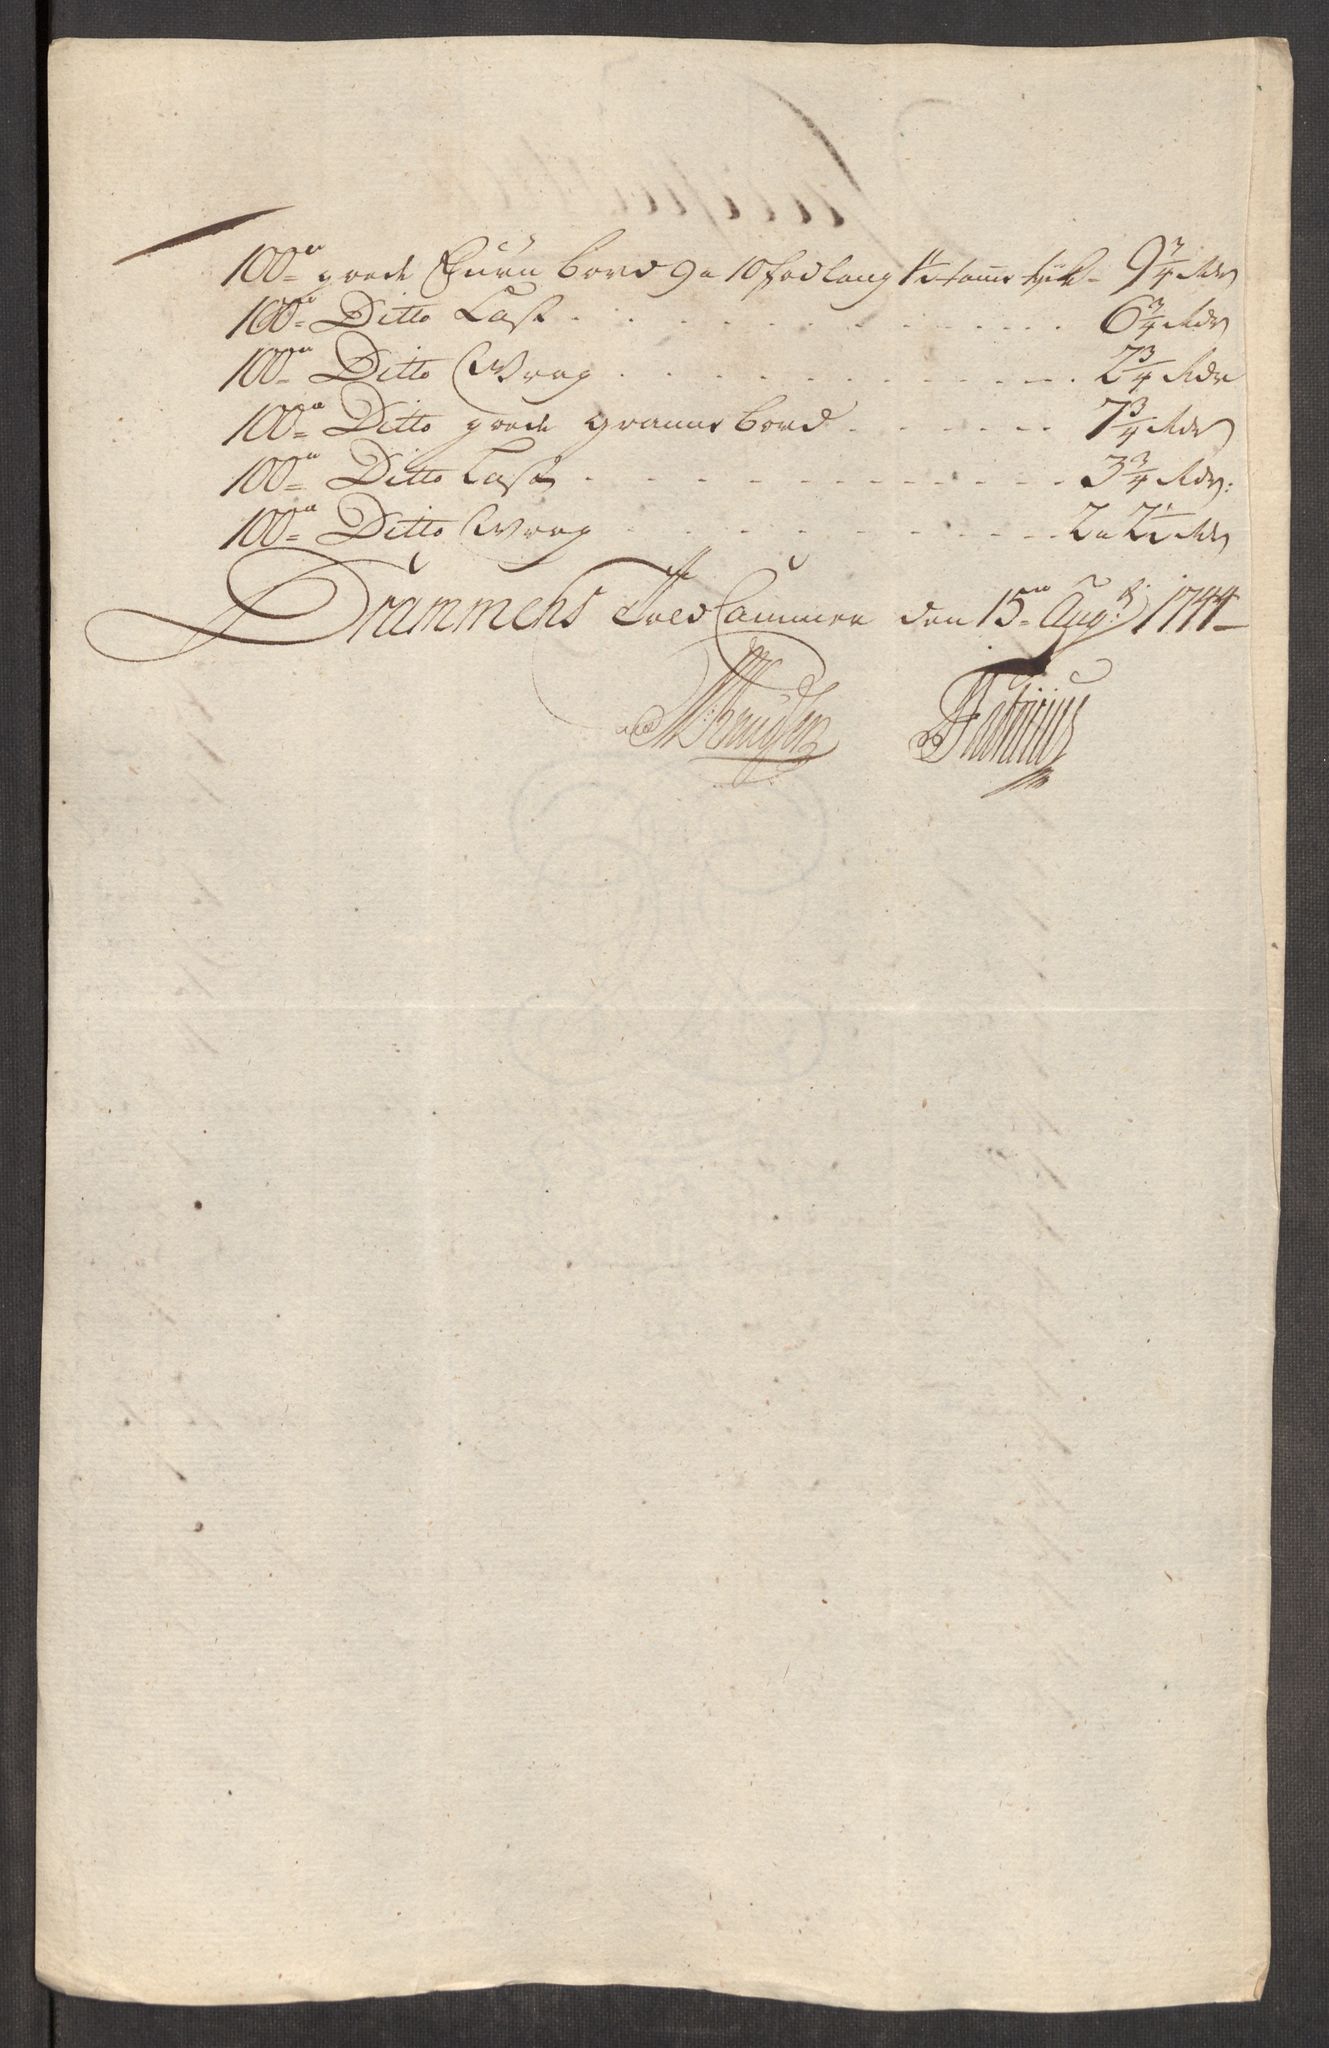 100de goede Furu bord 9 a 10 fod lang 1 1/4 tomme tyk - 9 3/4 Rdr
100de Ditto Last . . . . . . . . . . . . 6 3/4 Rdr
100de Ditto Wrag . . . . . . . . . . . . 2 3/4 Rdr
100de Ditto goede granne bord . . . . . . . 7 3/4 Rdr
100de Ditto Last . . . . . . . . . . . . 3 3/4 Rdr:
100de Ditto Wrag . . . . . . . . . . . . 2 a 2 1/2 Rdr
Drammens Told Cammer den 15de Aug: 1744
Fabricius